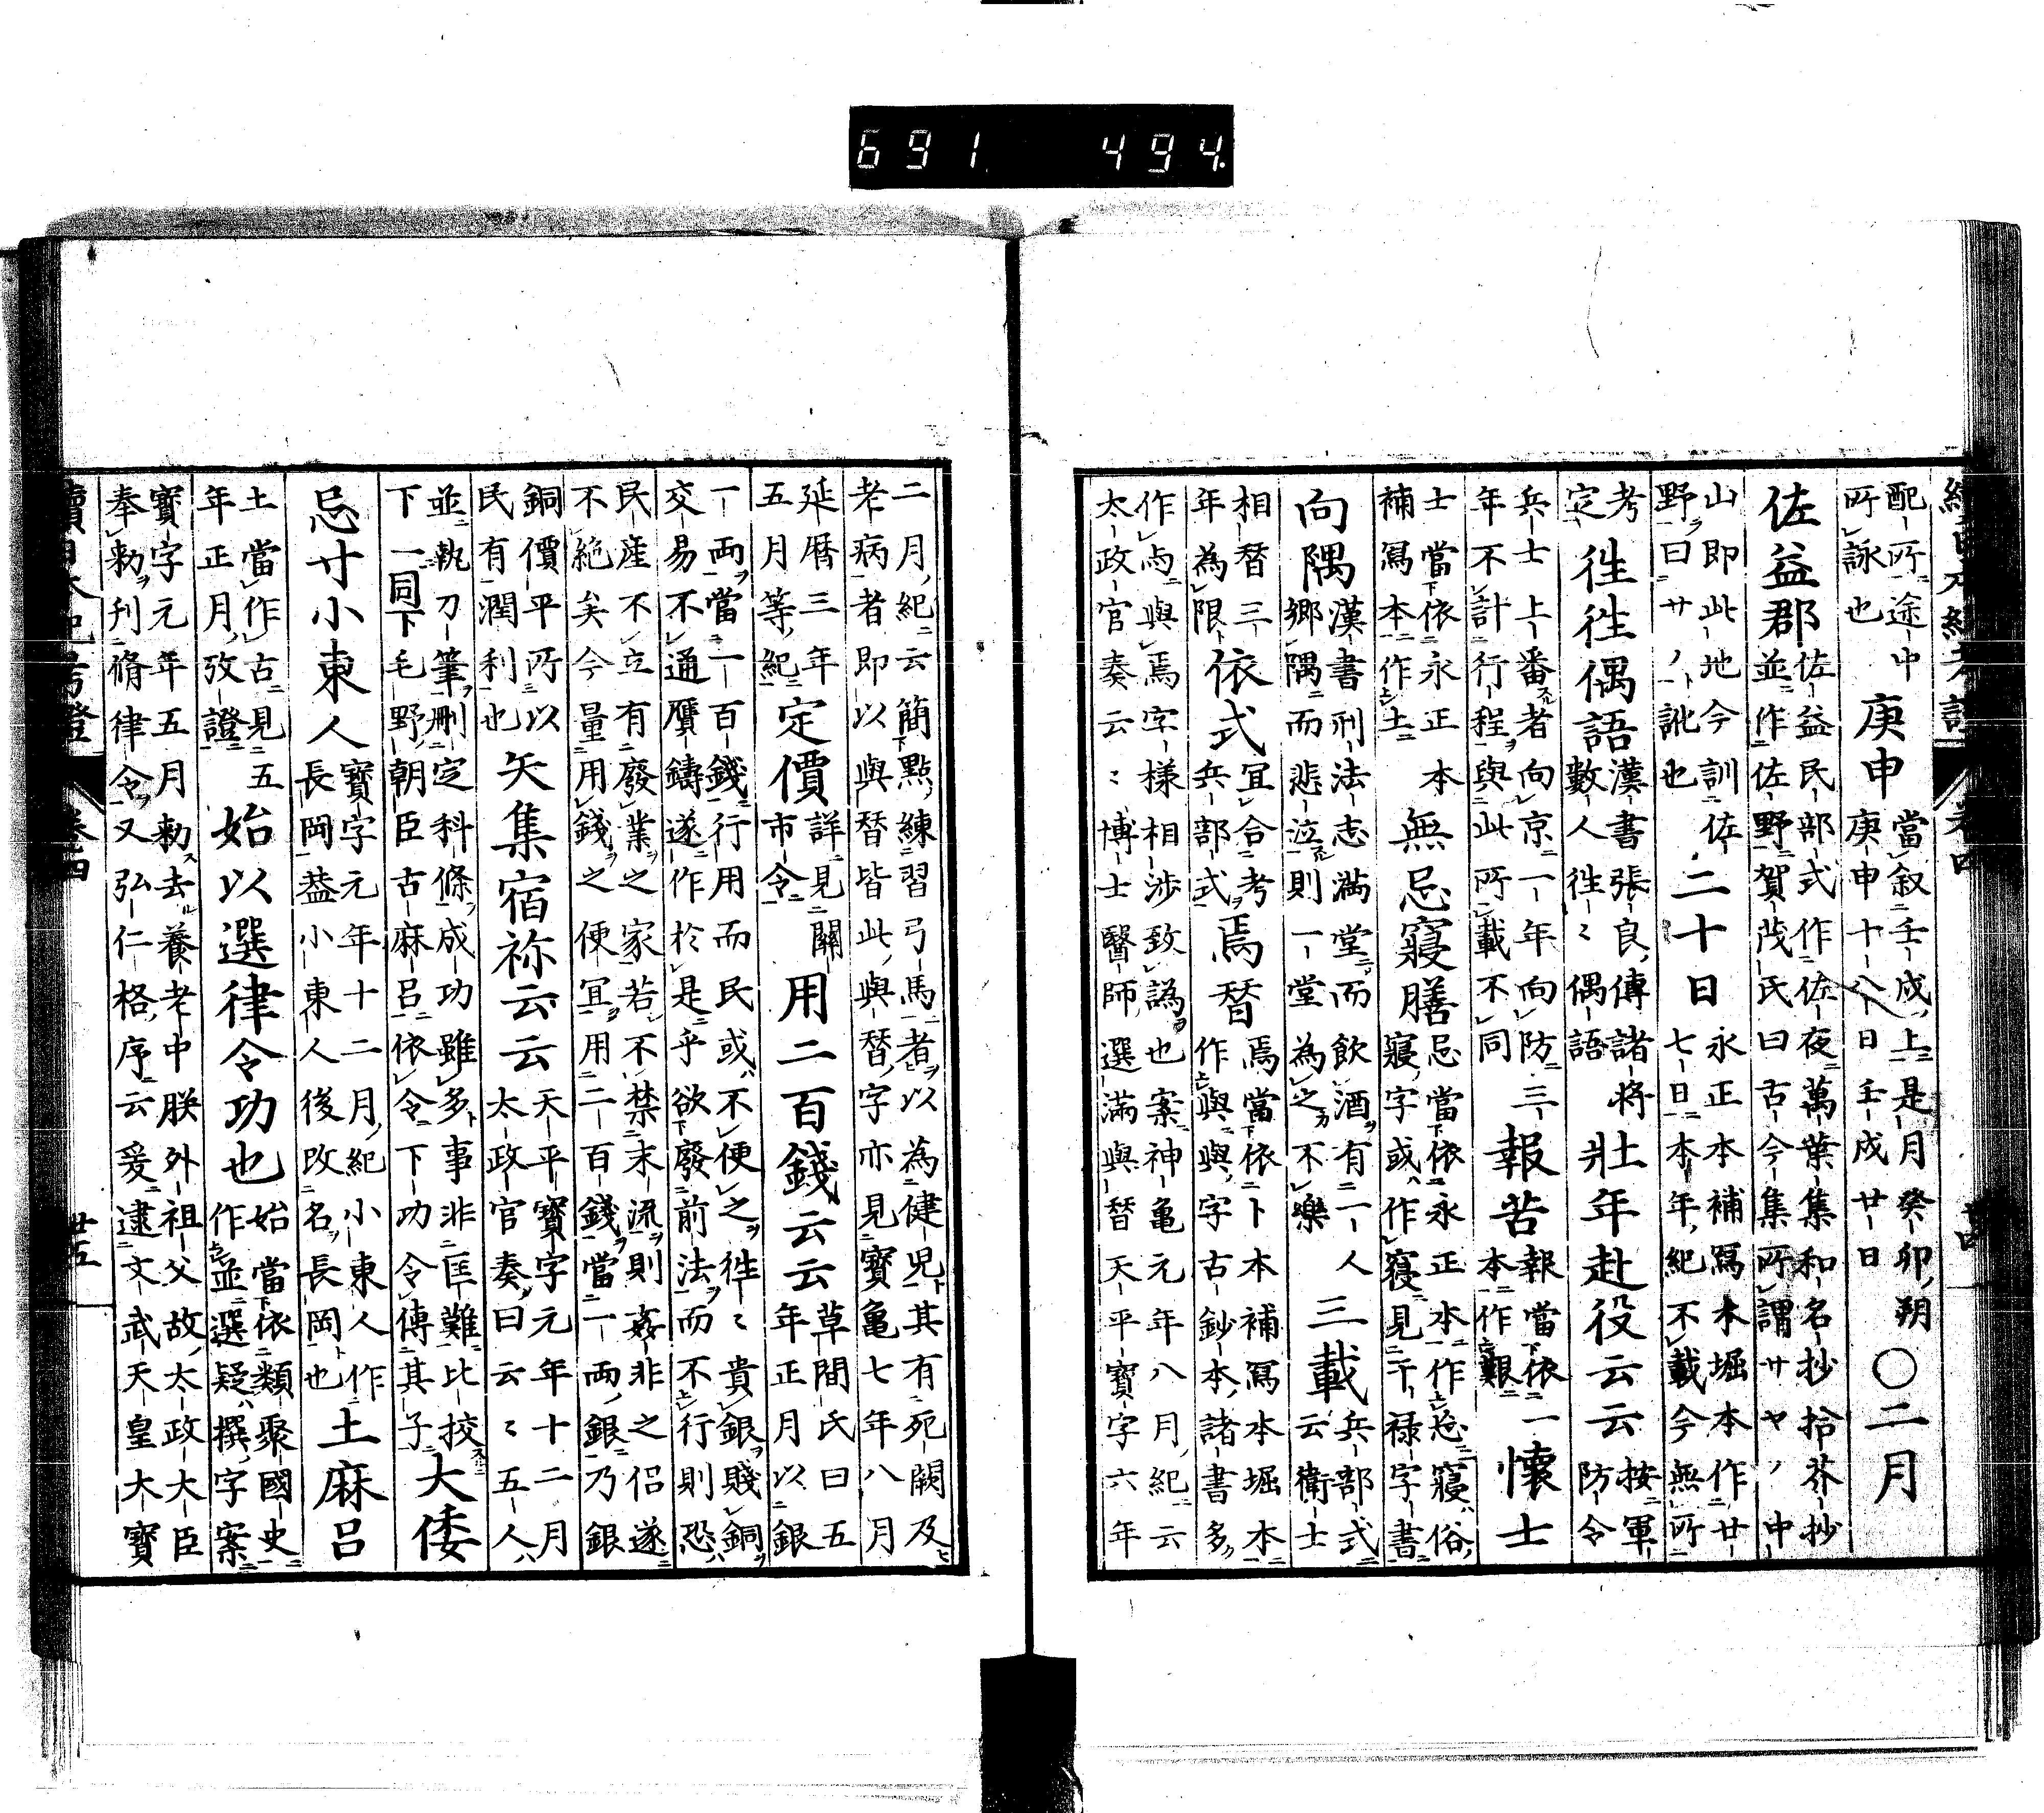 691 494
續日本紀考證 卷四 廿四
配所途中
所詠也
庚申
當叙壬戌上是月癸卯朔
庚申十八日壬戌廿日
○二月
佐益郡
佐益民部式作佐夜萬葉集和名抄拾芥抄
並作佐野賀茂氏曰古今集所謂サヤノ中
山即此地今訓佐
野曰サノ訛也
二十日
永正本補寫本堀本作廿
七日本年紀不載今無所
考
定
徃徃偶語
漢書張良傳諸將
數人徃〻偶語
壯年赴役云云
按軍
防令
兵士上番者向京一年向防三
年不計行程與此所載不同
報苦
報當依一
本作艱
懷士
士當依永正本
補寫本作土
無忌寢膳
忌當依永正本作忘寢俗
寢字或作寑見干祿字書
向隅
漢書刑法志滿堂而飲酒有一人
鄉隅而悲泣則一堂為之不樂
三載
兵部式
云衛士
相替三年
年為限
依式
宜合考
兵部式
焉替
焉當依卜本補寫本堀本
作與與字古鈔本諸書多
作与與焉字樣相涉致譌也案神龜元年八月紀云
太政官奏云〻博士醫師選滿與替天平寶字六年
二月紀云簡點練習弓馬者以為健兒其有死闕及
老病者即以與替皆此與替字亦見寶龜七年八月
延曆三年
五月等紀
定價
詳見關
市令
用二百錢云云
草間氏曰五
年正月以銀
一兩當一百錢行用而民或不便之徃〻貴銀賤銅
交易不通贋鑄遂作於是乎欲廢前法而不行則恐
民產不立有廢業之家若不禁末流則姦非之侶遂
不絶矣今量用錢之便宜用二百錢當一兩銀乃銀
銅價平所以
民有潤利也
矢集宿祢云云
天平寶字元年十二月
太政官奏曰云〻五人
並執刀筆刪定科條成功雖多事非匡難比挍
下一同下毛野朝臣古麻呂依令下功令傳其子
大倭
忌寸小東人
寶字元年十二月紀小東人作
長岡葢小東人後改名長岡也
土麻呂
土當作古見五
年正月攷證
始以選律令功也
始當依類聚國史
作並選疑撰字案
寶字元年五月勅去養老中朕外祖父故太政大臣
奉勅刊脩律令又弘仁格序云爰逮文武天皇大寶
續日本紀考證 卷四 廿五